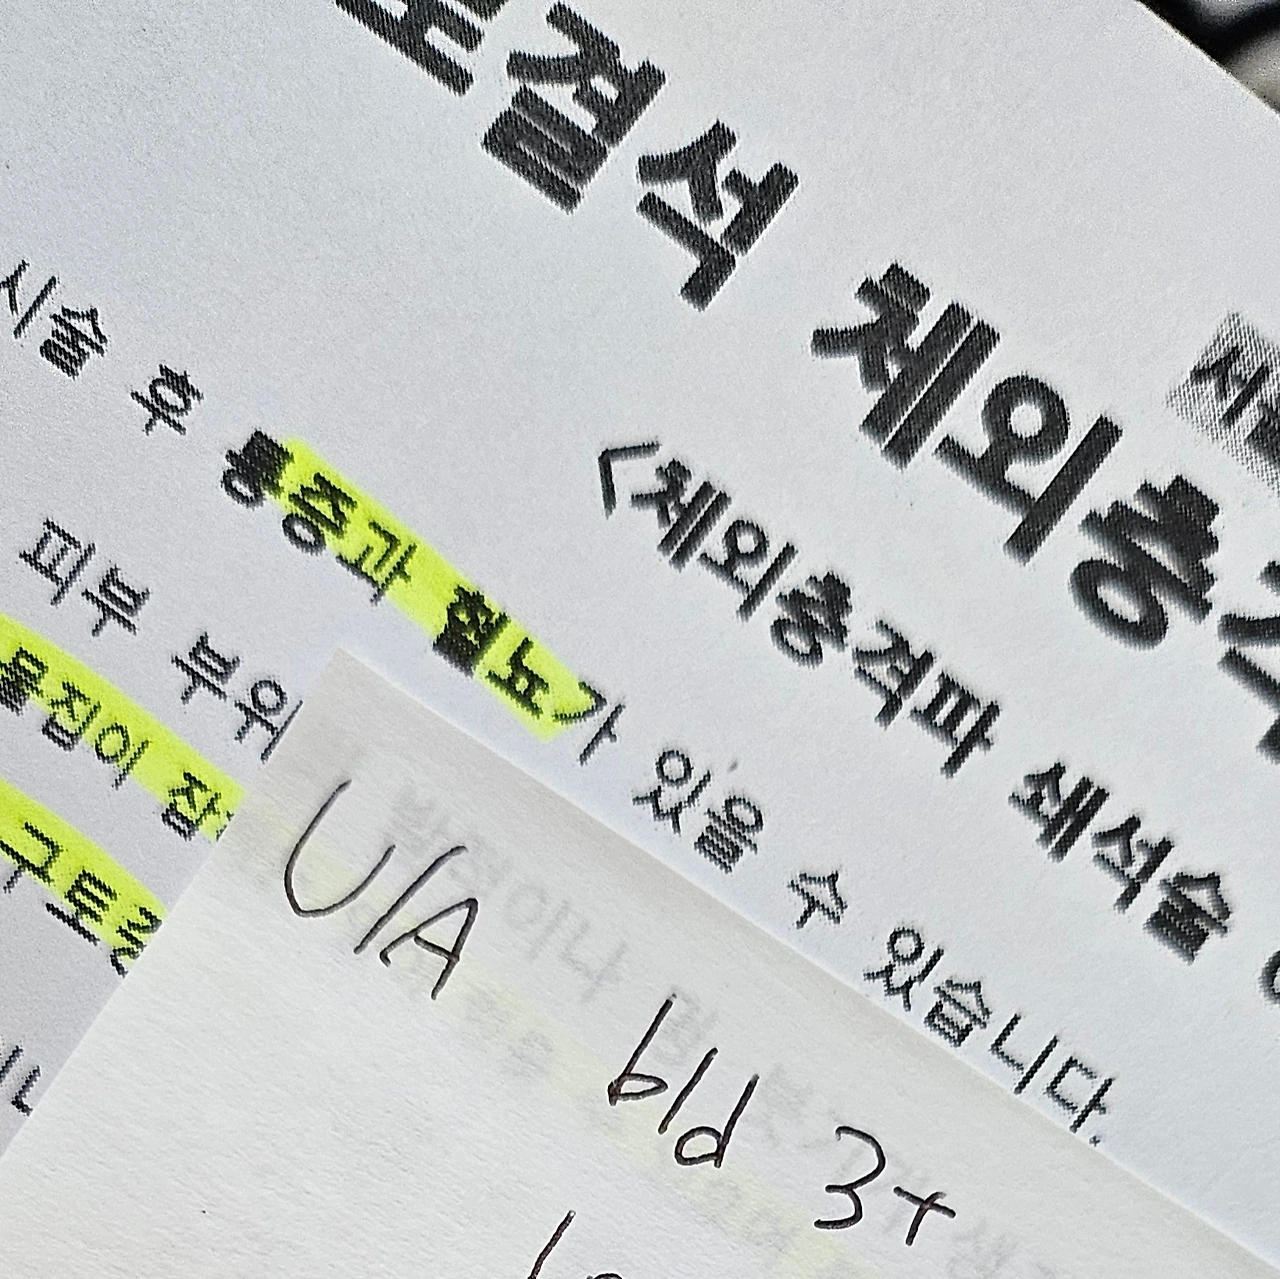 요결석 체외충격
<체외충격파 쇄석술
시술 후 통증과 혈뇨가 있을 수 있습니다.
피부 부위
물집이 잡
구토
U/A bld 3+